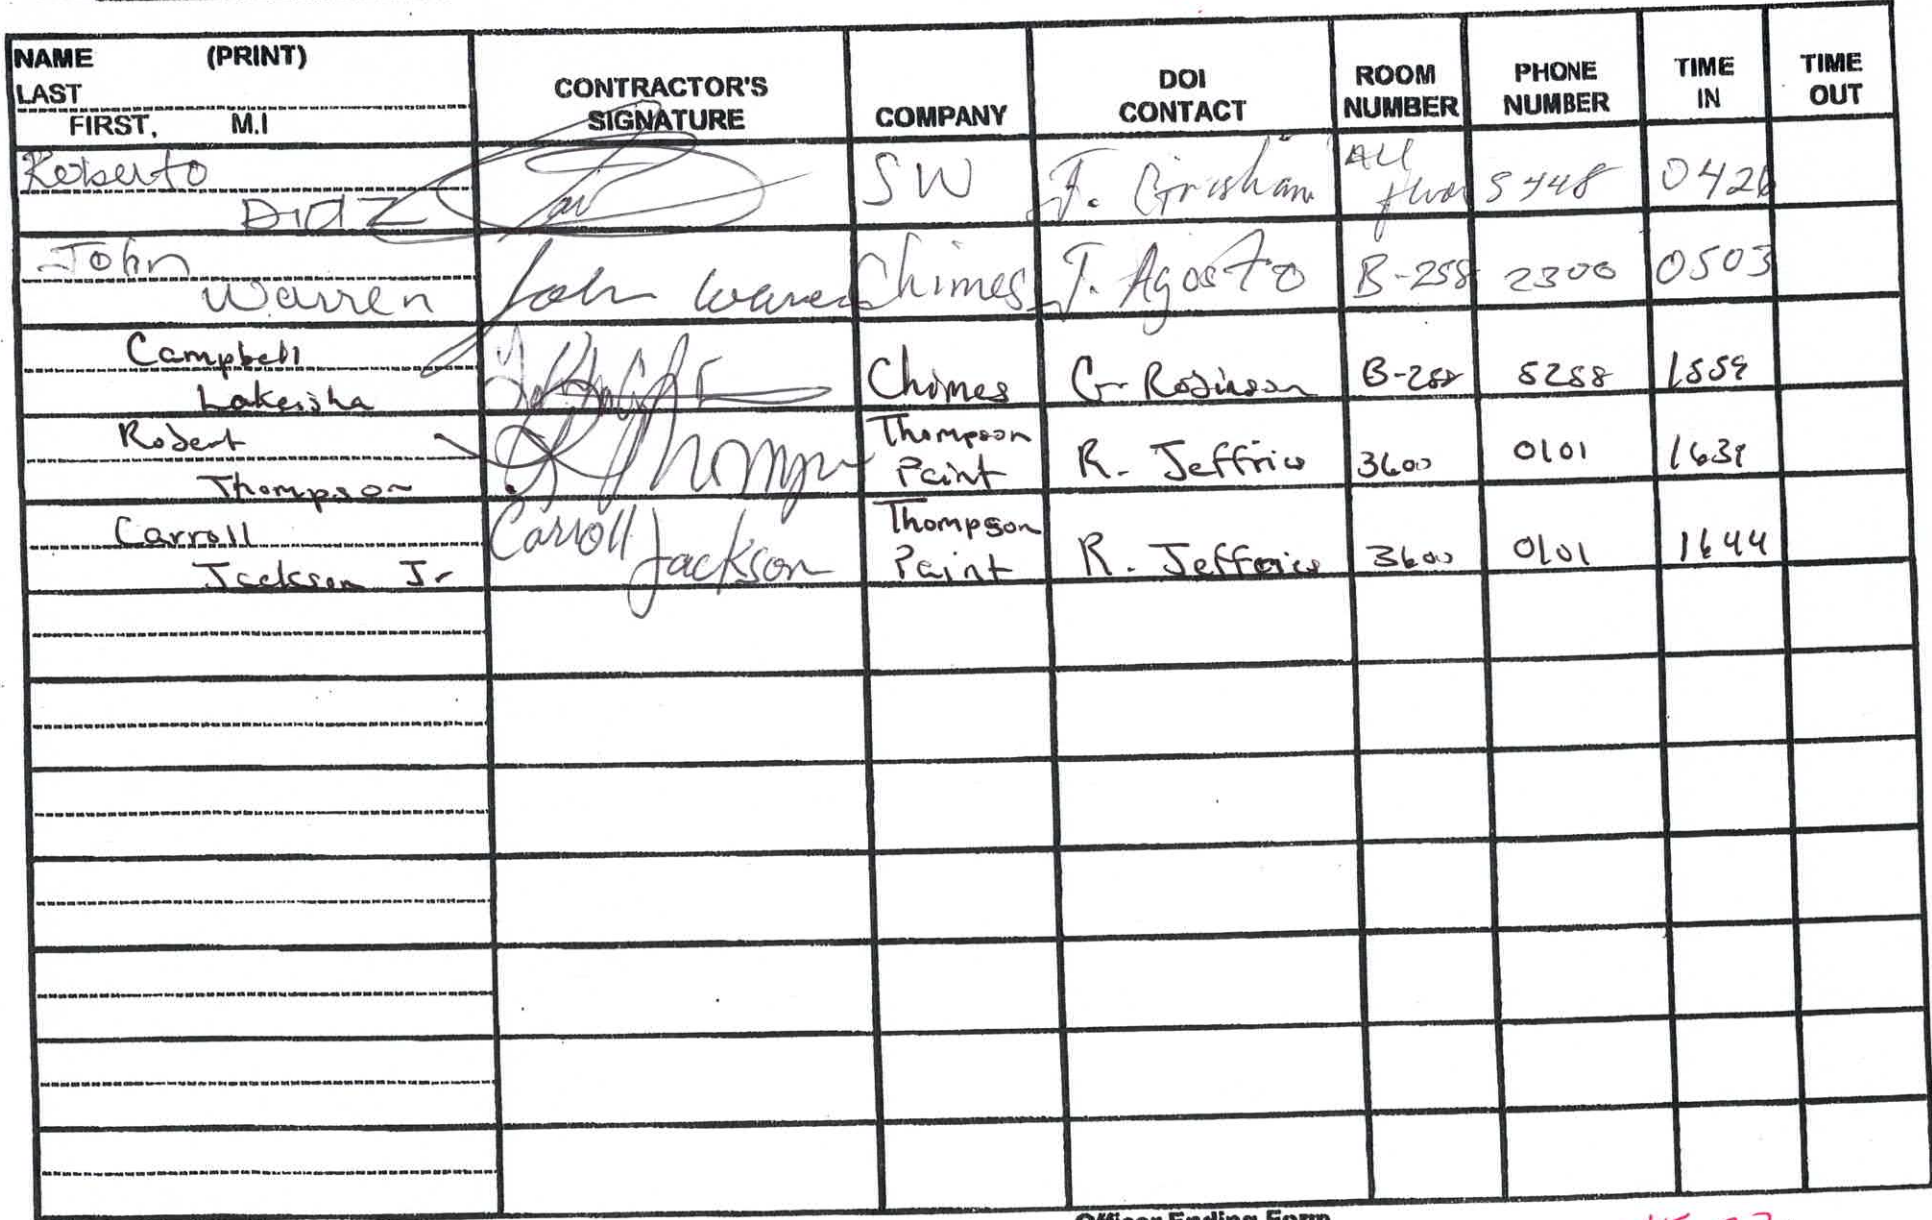 NAME (PRINT)
LAST
FIRST, M.I
CONTRACTOR'S
SIGNATURE
COMPANY
DOI
CONTACT
ROOM
NUMBER
PHONE
NUMBER
TIME
IN
TIME
OUT
Roberto
Diaz
SW
J. Grisham
All
floor
5448
0426
John
Warren
John Warren
Chimes
J. Agosto
B-258
2300
0503
Campbell
Lakeisha
Chimes
G Robinson
B-258
5258
1559
Robert
Thompson
R Thomp
Thompson
Paint
R. Jeffries
3600
0101
1639
Carroll
Jackson Jr
Carroll Jackson
Thompson
Paint
R. Jefferies
3600
0101
1644
Officer Ending Form